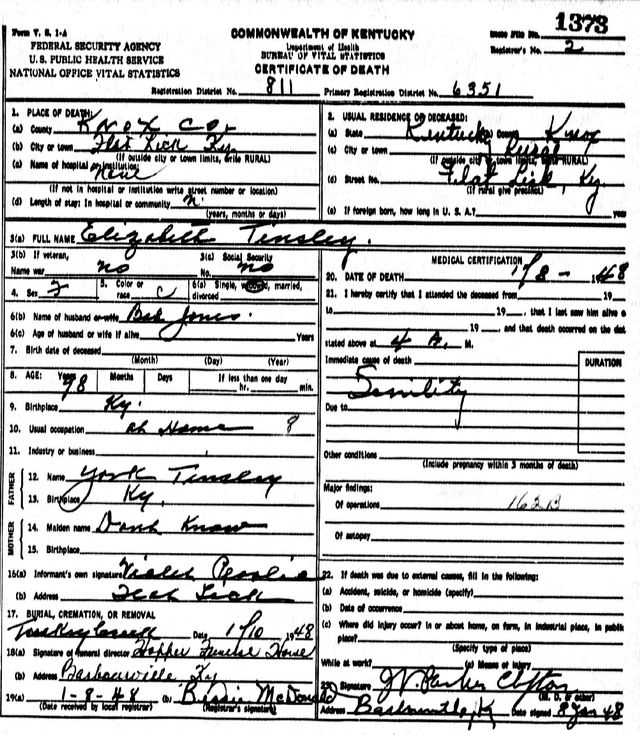 Form V. S. 1-A
FEDERAL SECURITY AGENCY
U. S. PUBLIC HEALTH SERVICE
NATIONAL OFFICE VITAL STATISTICS
COMMONWEALTH OF KENTUCKY
Department of Health
BUREAU OF VITAL STATISTICS
CERTIFICATE OF DEATH
1373
Registrar's No. 2
Registration District No. 811 Primary Registration District No. 6351
1. PLACE OF DEATH:
(a) County Knox Co.
(b) City or town Flat Lick Ky.
(If outside city or town limits, write RURAL)
(c) Name of hospital or institution:
None
(If not in hospital or institution write street number or location)
(d) Length of stay: In hospital or community
(years, months or days)
2. USUAL RESIDENCE OF DECEASED:
(a) State Kentucky County Knox
(c) City or town Rural
(If outside city or town limits, write RURAL)
(d) Street No. Flat Lick, Ky.
(If rural give precinct)
(e) If foreign born, how long in U. S. A.? years
3(a) FULL NAME Elizabeth Tinsley.
3(b) If veteran, 3(c) Social Security
Name war no No. no
4. Sex F 5. Color or race C 6(a) Single, widowed, married, divorced
6(b) Name of husband or wife Bob Jones.
6(c) Age of husband or wife if alive Years
7. Birth date of deceased
(Month) (Day) (Year)
8. AGE: Years Months Days If less than one day
98 hr. min.
9. Birthplace Ky.
10. Usual occupation at Home 8
11. Industry or business
FATHER
12. Name York Tinsley
13. Birthplace Ky.
MOTHER
14. Maiden name Dont Know
15. Birthplace
16(a) Informant's own signature Violet
(b) Address Flat Lick
17. BURIAL, CREMATION, OR REMOVAL
Date 1/10 1948
18(a) Signature of funeral director Hopper Funeral Home
(b) Address Barbourville Ky
19(a) 1-8-48 (b) Bessie McDonald
(Date received by local registrar) (Registrar's signature)
MEDICAL CERTIFICATION
20. DATE OF DEATH 1/8-48
21. I hereby certify that I attended the deceased from 19
to 19 , that I last saw him alive o
19 , and that death occurred on the dat
stated above at 4 A. M.
Immediate cause of death DURATION
Senility
Due to
Other conditions
(Include pregnancy within 3 months of death)
Major findings:
Of operations 162B
Of autopsy
22. If death was due to external causes, fill in the following:
(a) Accident, suicide, or homicide (specify)
(b) Date of occurrence
(c) Where did injury occur? In or about home, on farm, in industrial place, in public
place?
(Specify type of place)
While at work? (e) Means of injury
23. Signature
(M. D. or other)
Address Barbourville, K Date signed 8 Jan 48